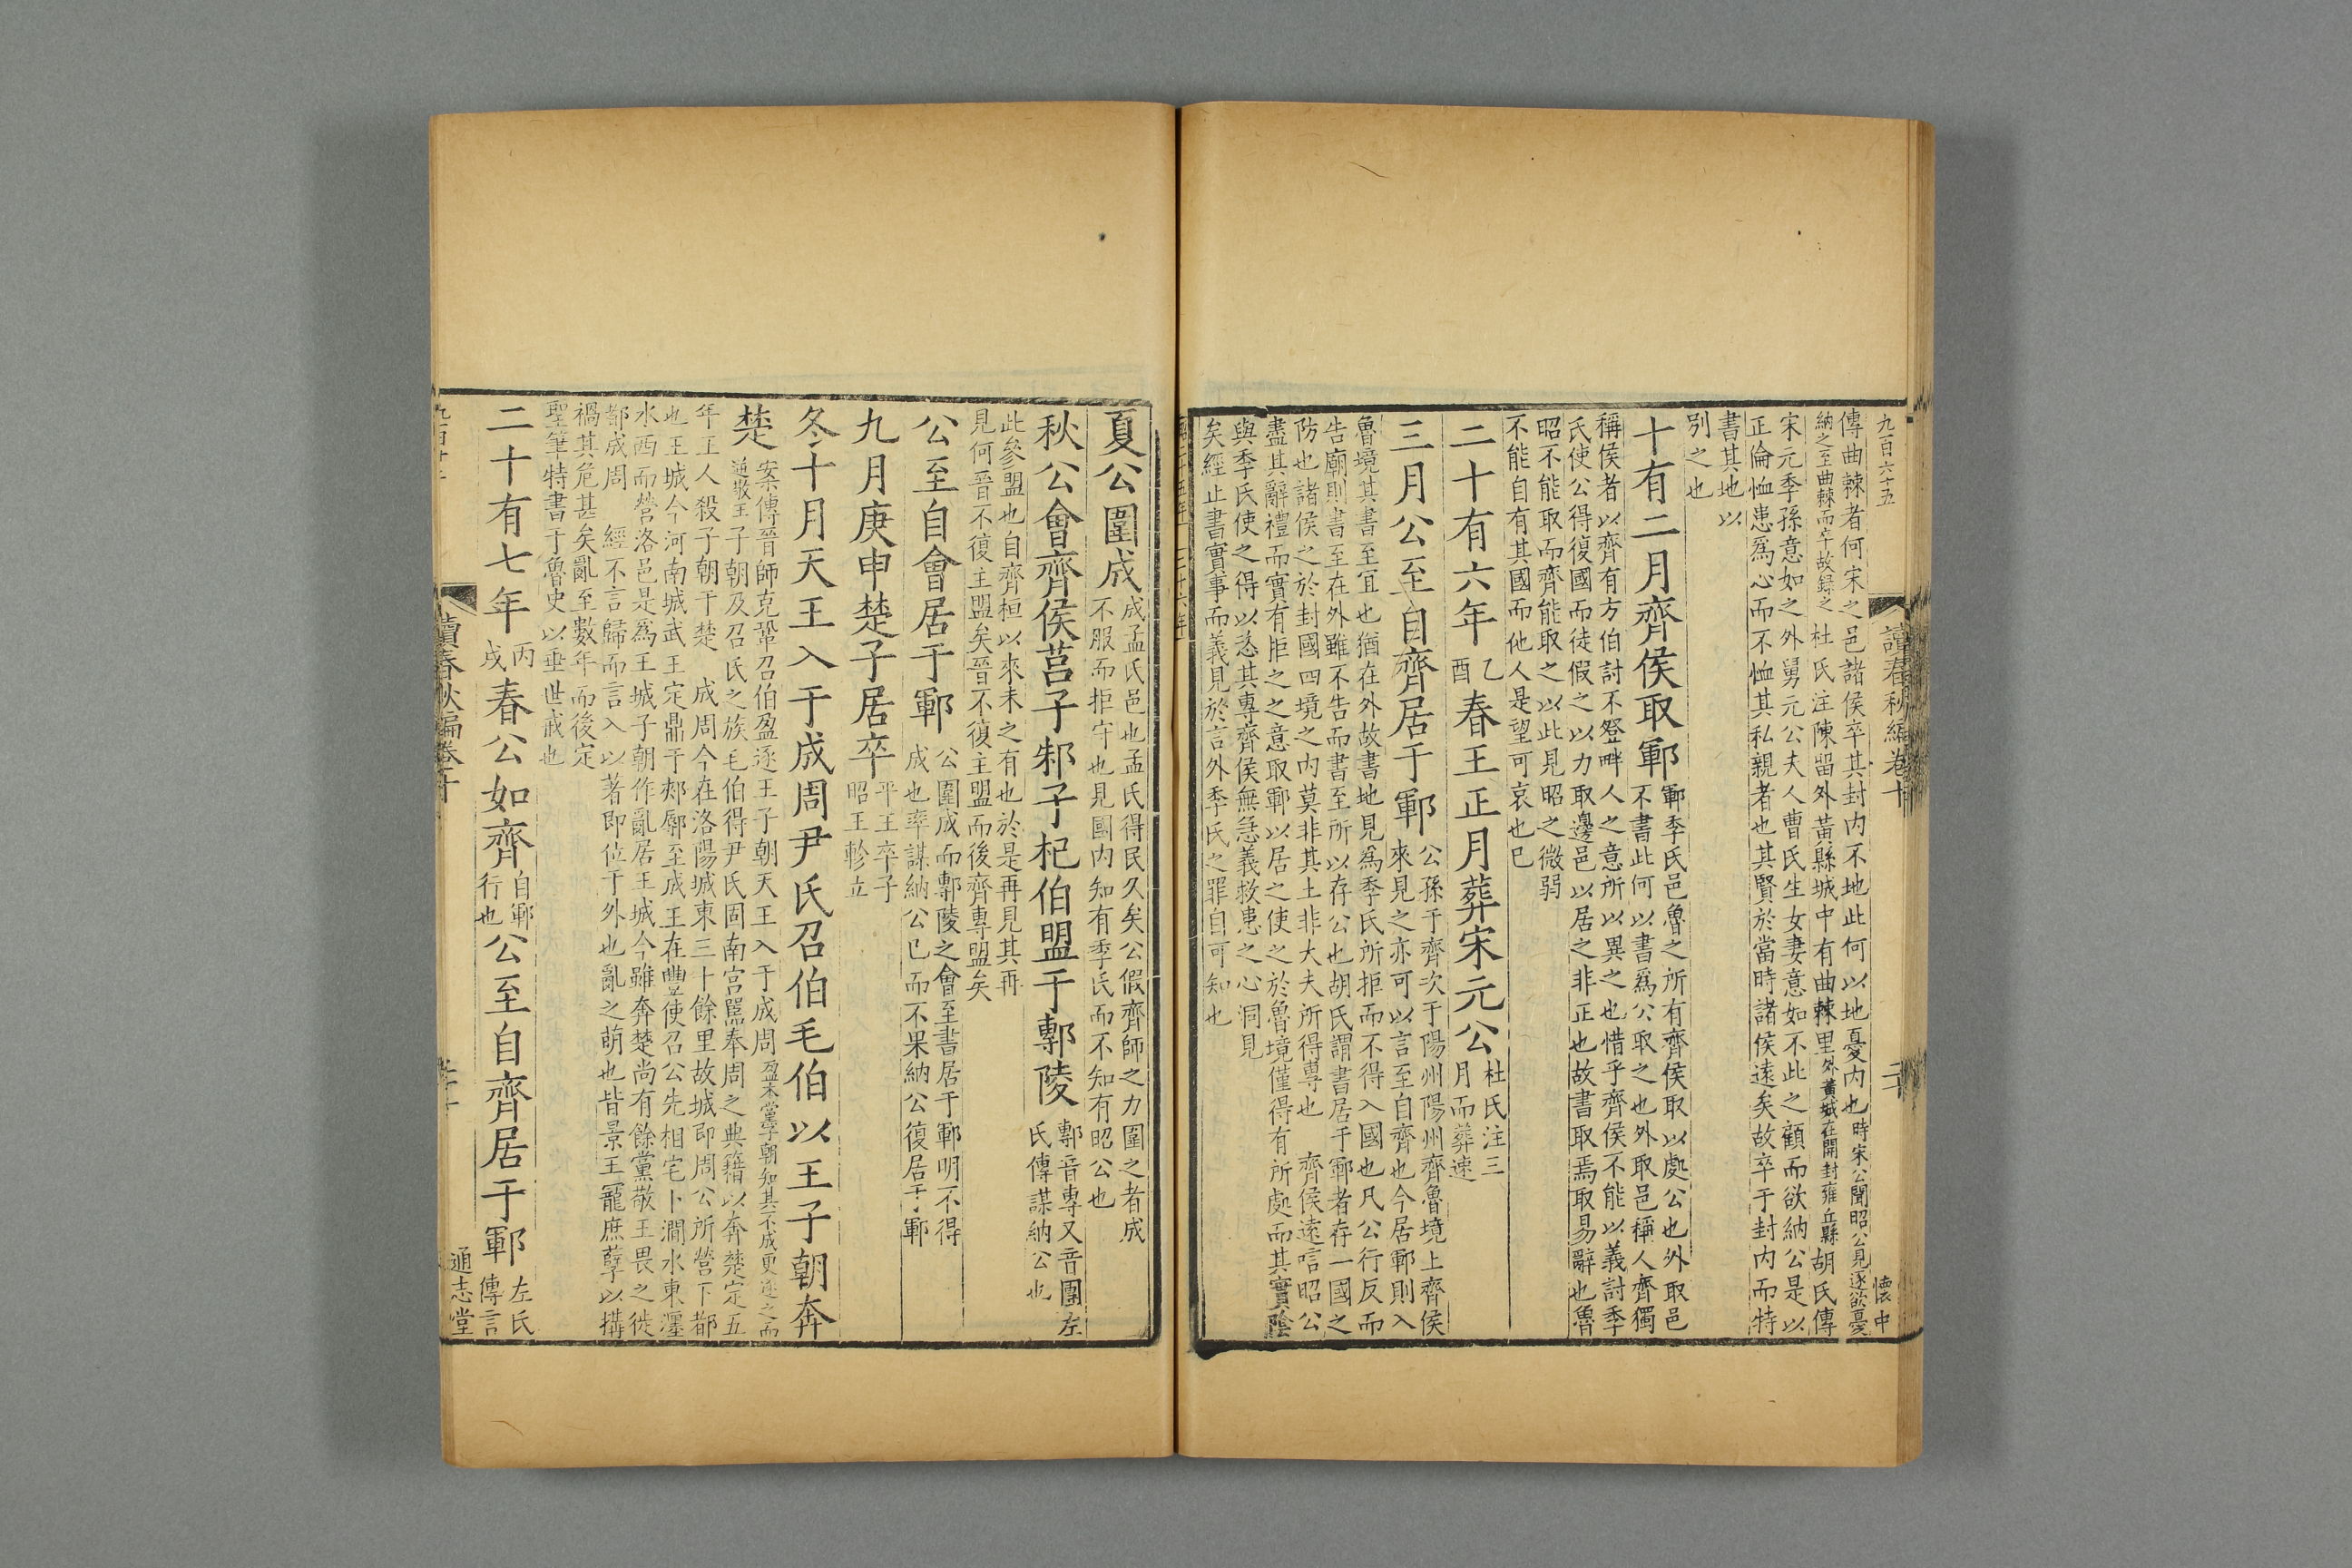 九百六十五
讀春秋編卷十
二十
懷中
傳曲棘者何宋之邑諸侯卒其封内不地此何以地憂内也時宋公聞昭公見逐欲憂
納之至曲棘而卒故録之杜氏注陳留外黃縣城中有曲棘里外黃城在開封雍丘縣胡氏傳
宋元季孫意如之外舅元公夫人曹氏生女妻意如不此之顧而欲納公是以
正倫恤患爲心而不恤其私親者也其賢於當時諸侯遠矣故卒于封内而特
書其地以
別之也
十有二月齊侯取鄆鄆季氏邑魯之所有齊侯取以處公也外取邑
不書此何以書爲公取之也外取邑稱人齊獨
稱侯者以齊有方伯討不登畔人之意所以異之也惜乎齊侯不能以義討季
氏使公得復國而徒假之以力取邊邑以居之非正也故書取焉取易辭也魯
昭不能取而齊能取之以此見昭之微弱
不能自有其國而他人是望可哀也已
二十有六年乙酉春王正月葬宋元公杜氏注三
月而葬速
三月公至自齊居于鄆公孫于齊次于陽州陽州齊魯境上齊侯
來見之亦可以言至自齊也今居鄆則入
魯境其書至宜也猶在外故書地見爲季氏所拒而不得入國也凡公行反而
告廟則書至在外雖不告而書至所以存公也胡氏謂書居于鄆者存一國之
防也諸侯之於封國四境之内莫非其土非大夫所得專也 齊侯遠唁昭公
盡其辭禮而實有拒之之意取鄆以居之使之於魯境僅得有所處而其實陰
與季氏使之得以恣其專齊侯無急義救患之心洞見
矣經止書實事而義見於言外季氏之罪自可知也
夏公圍成成孟氏邑也孟氏得民久矣公假齊師之力圍之者成
不服而拒守也見國内知有季氏而不知有昭公也
秋公會齊侯莒子邾子杞伯盟于鄟陵鄟音專又音團左
氏傳謀納公也
此參盟也自齊桓以來未之有也於是再見其再
見何晉不復主盟矣晉不復主盟而後齊專盟矣
公至自會居于鄆公圍成而鄟陵之會至書居于鄆明不得
成也率謀納公已而不果納公復居于鄆
九月庚申楚子居卒平王卒子
昭王軫立
冬十月天王入于成周尹氏召伯毛伯以王子朝奔
楚案傳晉師克鞏召伯盈逐王子朝天王入于成周盈本黨子朝知其不成更逐之而
逆敬王子朝及召氏之族毛伯得尹氏固南宮嚚奉周之典籍以奔楚定五
年王人殺子朝于楚 成周今在洛陽城東三十餘里故城即周公所營下都
也王城今河南城武王定鼎于郟鄏至成王在豐使召公先相宅卜澗水東瀍
水西而營洛邑是爲王城子朝作亂居王城今雖奔楚尚有餘黨敬王畏之徙
都成周 經不言歸而言入以著即位于外也亂之萌也皆景王寵庶孽以搆
禍其危甚矣亂至數年而後定
聖筆特書于魯史以垂世戒也
二十有七年丙戌春公如齊自鄆
行也公至自齊居于鄆左氏
傳言
讀春秋編卷十
通志堂